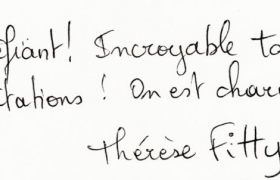 éfiant! Incroyable ta
itations ! On est char
Thérèse Fitty